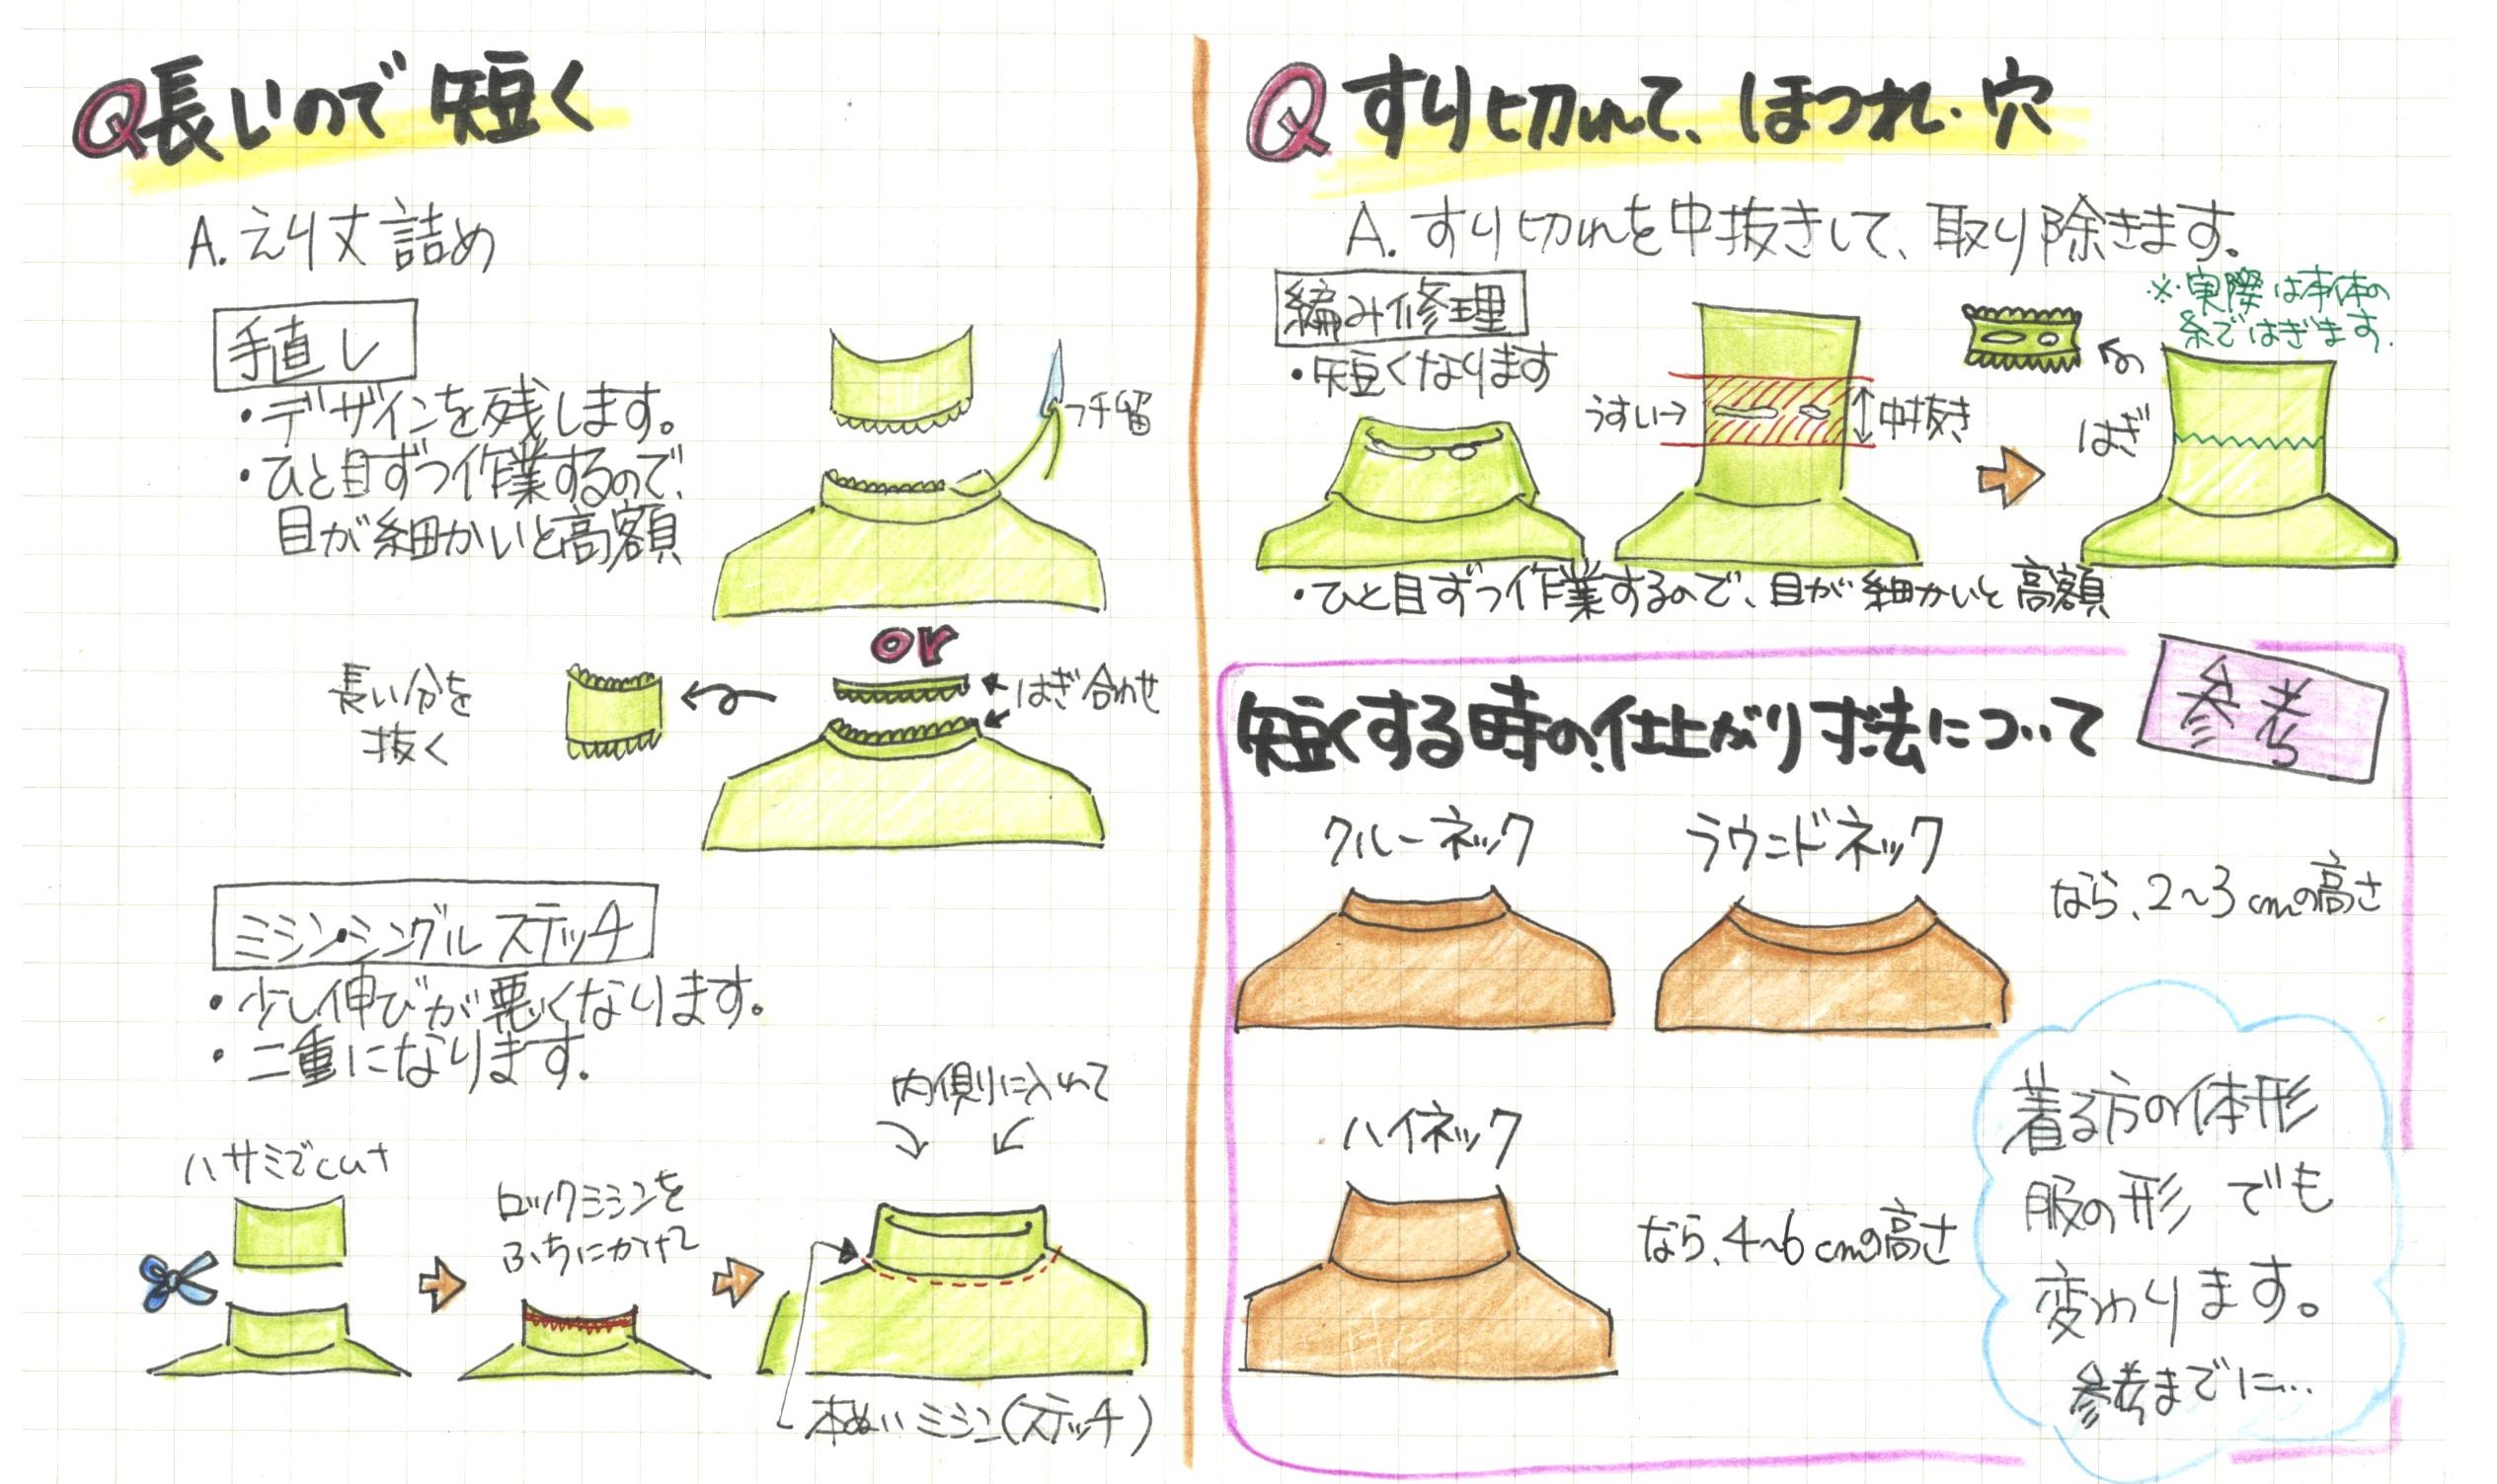 Q長いので短く
A.えり丈詰め
手直し
・デザインを残します。
・ひと目ずつ作業するので、
目が細かいと高額
フチ留
or
長い分を
抜く
はぎ合わせ
ミシン・シングルステッチ
・少し伸びが悪くなります。
・二重になります。
ハサミでcut
ロックミシンを
ふちにかけて
内側に入れて
本ぬいミシン(ステッチ)
Qすり切れて、ほつれ・穴
A.すり切れを中抜きして、取り除きます。
編み修理
・短くなります
うすい→
中抜き
※実際は本体の
糸ではぎます。
はぎ
・ひと目ずつ作業するので、目が細かいと高額
参考
短くする時の仕上がり寸法について
クルーネック
ラウンドネック
なら、2〜3cmの高さ
ハイネック
なら、4〜6cmの高さ
着る方の体形
服の形でも
変わります。
参考までに…